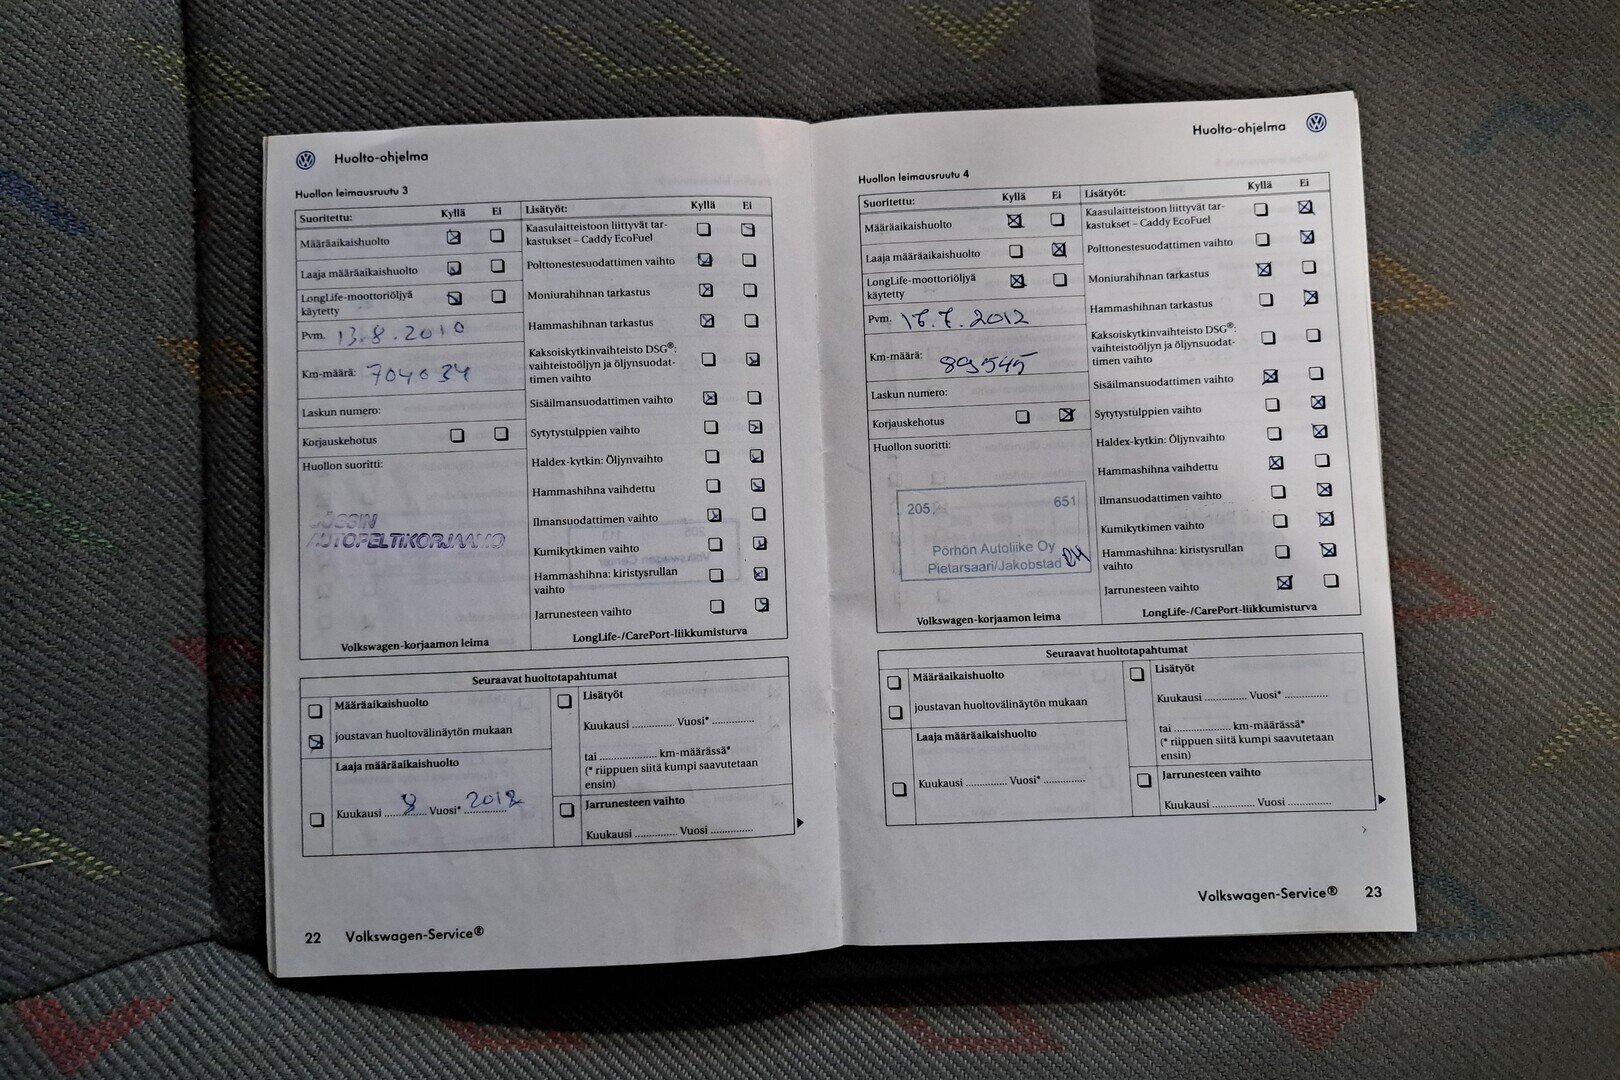 Huolto-ohjelma
Huollon leimausruutu 3
Suoritettu: Kyllä Ei
Määräaikaishuolto
Laaja määräaikaishuolto
LongLife-moottoriöljyä
käytetty
Pvm. 13.8.2010
Km-määrä: 704034
Laskun numero:
Korjauskehotus
Huollon suoritti:
AUTOPELTIKORJAAMO
Volkswagen-korjaamon leima
Lisätyöt: Kyllä Ei
Kaasulaitteistoon liittyvät tar-
kastukset – Caddy EcoFuel
Polttonestesuodattimen vaihto
Moniurahihnan tarkastus
Hammashihnan tarkastus
Kaksoiskytkinvaihteisto DSG®:
vaihteistoöljyn ja öljynsuodat-
timen vaihto
Sisäilmansuodattimen vaihto
Sytytystulppien vaihto
Haldex-kytkin: Öljynvaihto
Hammashihna vaihdettu
Ilmansuodattimen vaihto
Kumikytkimen vaihto
Hammashihna: kiristysrullan
vaihto
Jarrunesteen vaihto
LongLife-/CarePort-liikkumisturva
Seuraavat huoltotapahtumat
Määräaikaishuolto
joustavan huoltovälinäytön mukaan
Laaja määräaikaishuolto
Kuukausi 8 Vuosi* 2012
Lisätyöt
Kuukausi .............. Vuosi* ..............
tai .................... km-määrässä*
(* riippuen siitä kumpi saavutetaan
ensin)
Jarrunesteen vaihto
Kuukausi .............. Vuosi ..............
22 Volkswagen-Service®
Huolto-ohjelma
Huollon leimausruutu 4
Suoritettu: Kyllä Ei
Määräaikaishuolto
Laaja määräaikaishuolto
LongLife-moottoriöljyä
käytetty
Pvm. 17.7.2012
Km-määrä: 89545
Laskun numero:
Korjauskehotus
Huollon suoritti:
205 651
Pörhön Autoliike Oy
Pietarsaari/Jakobstad
Volkswagen-korjaamon leima
Lisätyöt: Kyllä Ei
Kaasulaitteistoon liittyvät tar-
kastukset – Caddy EcoFuel
Polttonestesuodattimen vaihto
Moniurahihnan tarkastus
Hammashihnan tarkastus
Kaksoiskytkinvaihteisto DSG®:
vaihteistoöljyn ja öljynsuodat-
timen vaihto
Sisäilmansuodattimen vaihto
Sytytystulppien vaihto
Haldex-kytkin: Öljynvaihto
Hammashihna vaihdettu
Ilmansuodattimen vaihto
Kumikytkimen vaihto
Hammashihna: kiristysrullan
vaihto
Jarrunesteen vaihto
LongLife-/CarePort-liikkumisturva
Seuraavat huoltotapahtumat
Määräaikaishuolto
joustavan huoltovälinäytön mukaan
Laaja määräaikaishuolto
Kuukausi .............. Vuosi* ..............
Lisätyöt
Kuukausi .............. Vuosi* ..............
tai .................... km-määrässä*
(* riippuen siitä kumpi saavutetaan
ensin)
Jarrunesteen vaihto
Kuukausi .............. Vuosi ..............
Volkswagen-Service® 23